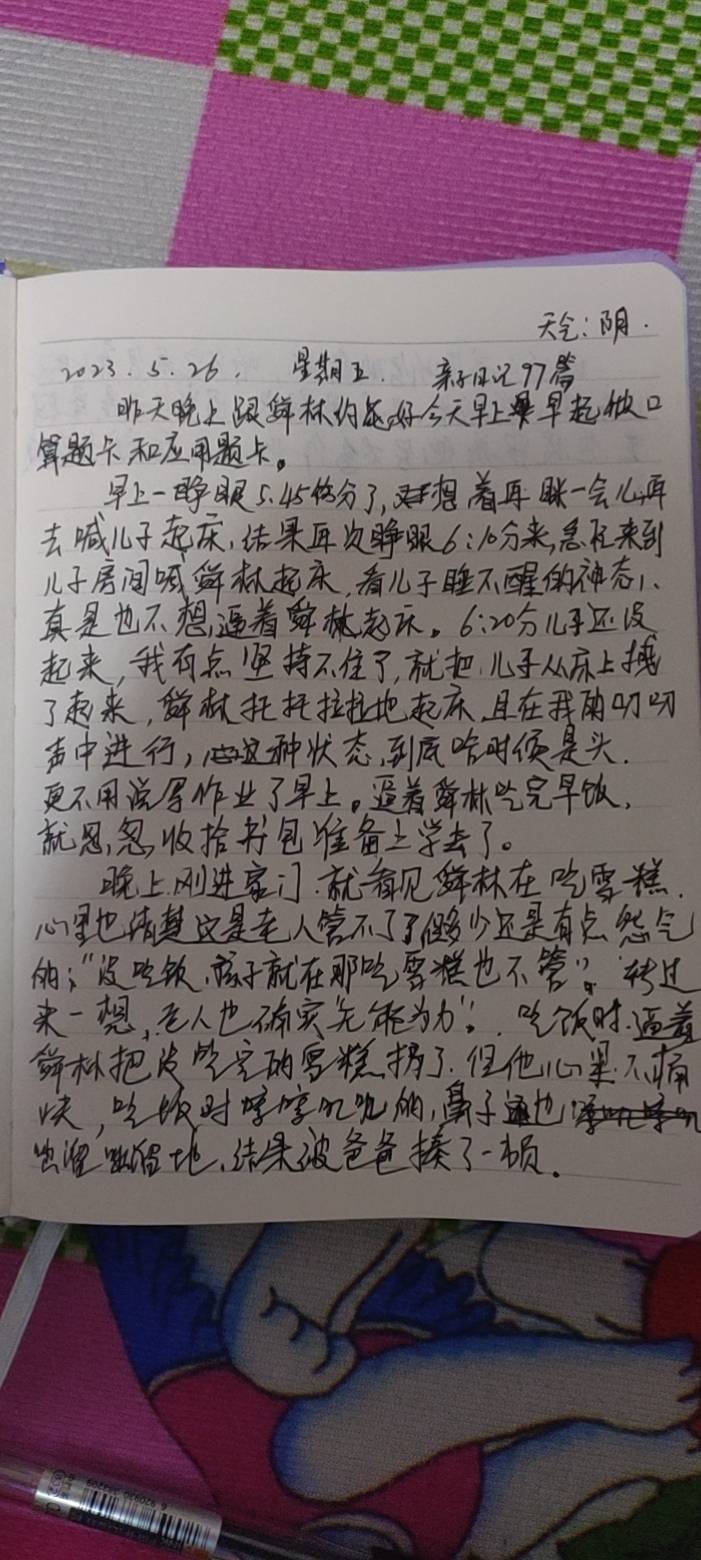 天气:阴.
2023.5.26. 星期五. 亲子日记97篇
昨天晚上跟舜林约好今天早上早起做口
算题卡和应用题卡。
早上一睁眼5.45份分了,想着再眯一会儿再
去喊儿子起床,结果再次睁眼6:10分来,急狂来到
儿子房间喊舜林起床,看儿子睡不醒的神态,
真是也不想逼着舜林起床。6:20分儿子还没
起来,我有点坚持不住了,就把儿子从床上拽
了起来,舜林托托拉拉地起床,且在我的叨叨
声中进行,这种状态,到底啥时候是头.
更不用说写作业了早上。逼着舜林吃完早饭,
就忽忽收拾书包准备上学去了。
晚上刚进家门.就看见舜林在吃雪糕.
心里也清楚这是老人管不了了但多少还是有点怨气
的;“没吃饭,孩子就在那吃雪糕也不管”。转过
来一想,老人也确实“无能为力”。.吃饭时.逼着
舜林把没吃完的雪糕扔了.但他心里不痛
快,吃饭时哼哼叽叽的,鼻子也
地,结果被爸爸揍了一顿.